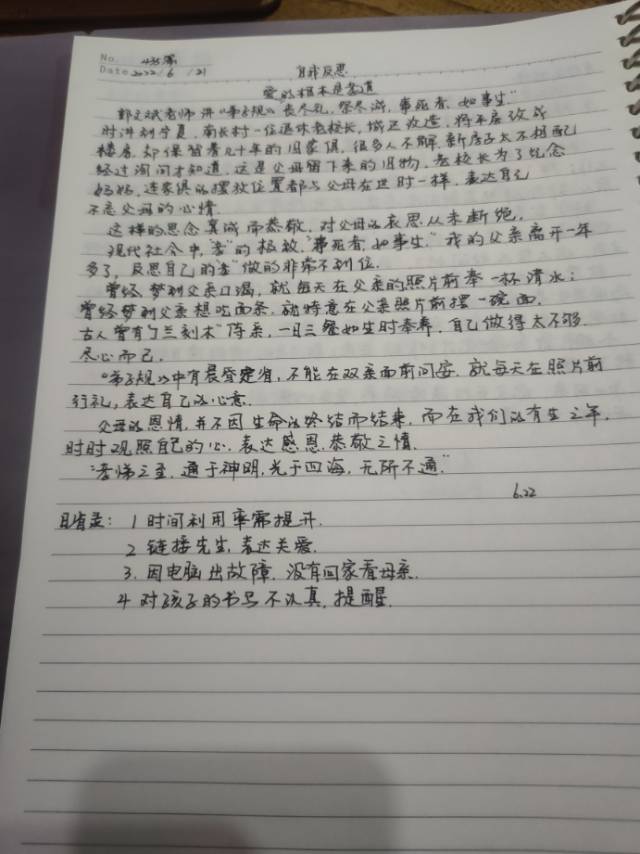 No.
Date 2022/6/21
自我反思
爱的根本是孝道
郭文斌老师讲《弟子规》"丧尽礼,祭尽诚,事死者,如事生"
时讲到宁夏,南长村一位退休老校长,城区改造,将平房改成
楼房,却保留着几十年的旧家俱,很多人不解,新房子太不相配
经过询问才知道,这是父母留下来的旧物,老校长为了纪念
妈妈,连家俱的摆放位置都与父母在世时一样,表达自己
不忘父母的心情.
这样的思念真诚而恭敬,对父母的哀思从未断绝.
现代社会中,"孝"的极致,"事死者,如事生."我的父亲离开一年
多了,反思自己的"孝"做的非常不到位.
曾经梦到父亲口渴,就每天在父亲的照片前奉一杯清水;
曾经梦到父亲想吃面条,就特意在父亲照片前摆一碗面.
古人曾有丁兰刻木"侍亲,一日三餐如生时奉养,自己做得太不够
尽心而已.
"弟子规》中有晨昏定省,不能在双亲面前问安,就每天在照片前
行礼,表达自己的心意.
父母的恩情,并不因生命的终结而结束,而在我们的有生之年,
时时观照自己的心,表达感恩.恭敬之情.
"孝悌之至,通于神明,光于四海,无所不通."
6.22
日省益:1 时间利用率需提升.
2 链接先生,表达关爱.
3.因电脑出故障.没有回家看母亲.
4 对孩子的书写不认真,提醒.